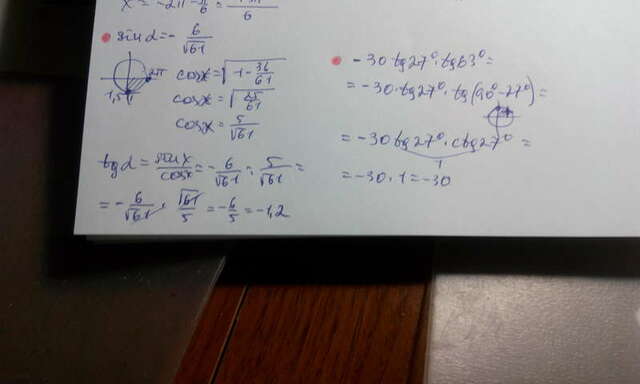 x = -2π - π/6 =
sin α = - 6/√61
2π
1,5π
cos x = √(1 - 36/61)
cos x = √(25/61)
cos x = 5/√61
tg α = sin x/cos x = - 6/√61 : 5/√61 =
= - 6/√61 · √61/5 = - 6/5 = -1,2
-30 tg27° · tg63° =
= -30 · tg27° · tg(90° - 27°) =
= -30 tg27° · ctg27° =
1
= -30 · 1 = -30